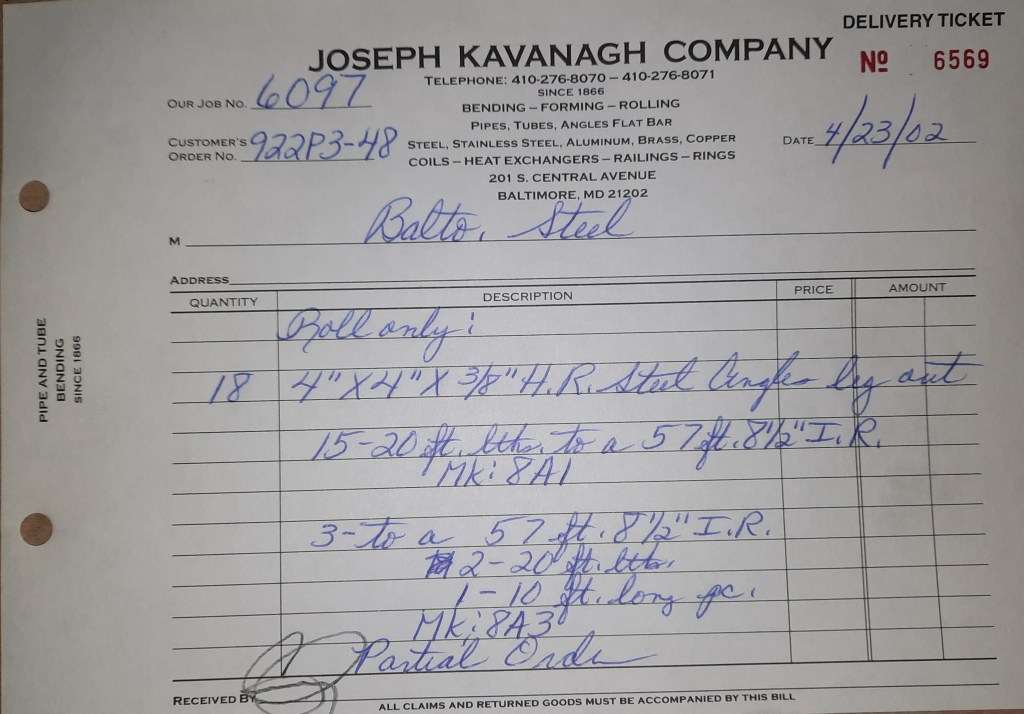 DELIVERY TICKET
JOSEPH KAVANAGH COMPANY
Nº 6569
TELEPHONE: 410-276-8070 – 410-276-8071
SINCE 1866
OUR JOB NO. 6097
BENDING – FORMING – ROLLING
PIPES, TUBES, ANGLES FLAT BAR
CUSTOMER'S ORDER NO. 922P3-48
STEEL, STAINLESS STEEL, ALUMINUM, BRASS, COPPER
DATE 4/23/02
COILS – HEAT EXCHANGERS – RAILINGS – RINGS
201 S. CENTRAL AVENUE
BALTIMORE, MD 21202
M Balto. Steel
ADDRESS
QUANTITY DESCRIPTION PRICE AMOUNT
Roll only:
18 4" X 4" X 3/8" H.R. Steel Angles leg out
15-20 ft. lths. to a 57 ft. 8 1/2" I.R.
Mk: 8A1
3-to a 57 ft. 8 1/2" I.R.
2-20 ft. lths.
1-10 ft. long pc.
Mk: 8A3
Partial Order
RECEIVED BY
ALL CLAIMS AND RETURNED GOODS MUST BE ACCOMPANIED BY THIS BILL
PIPE AND TUBE
BENDING
SINCE 1866